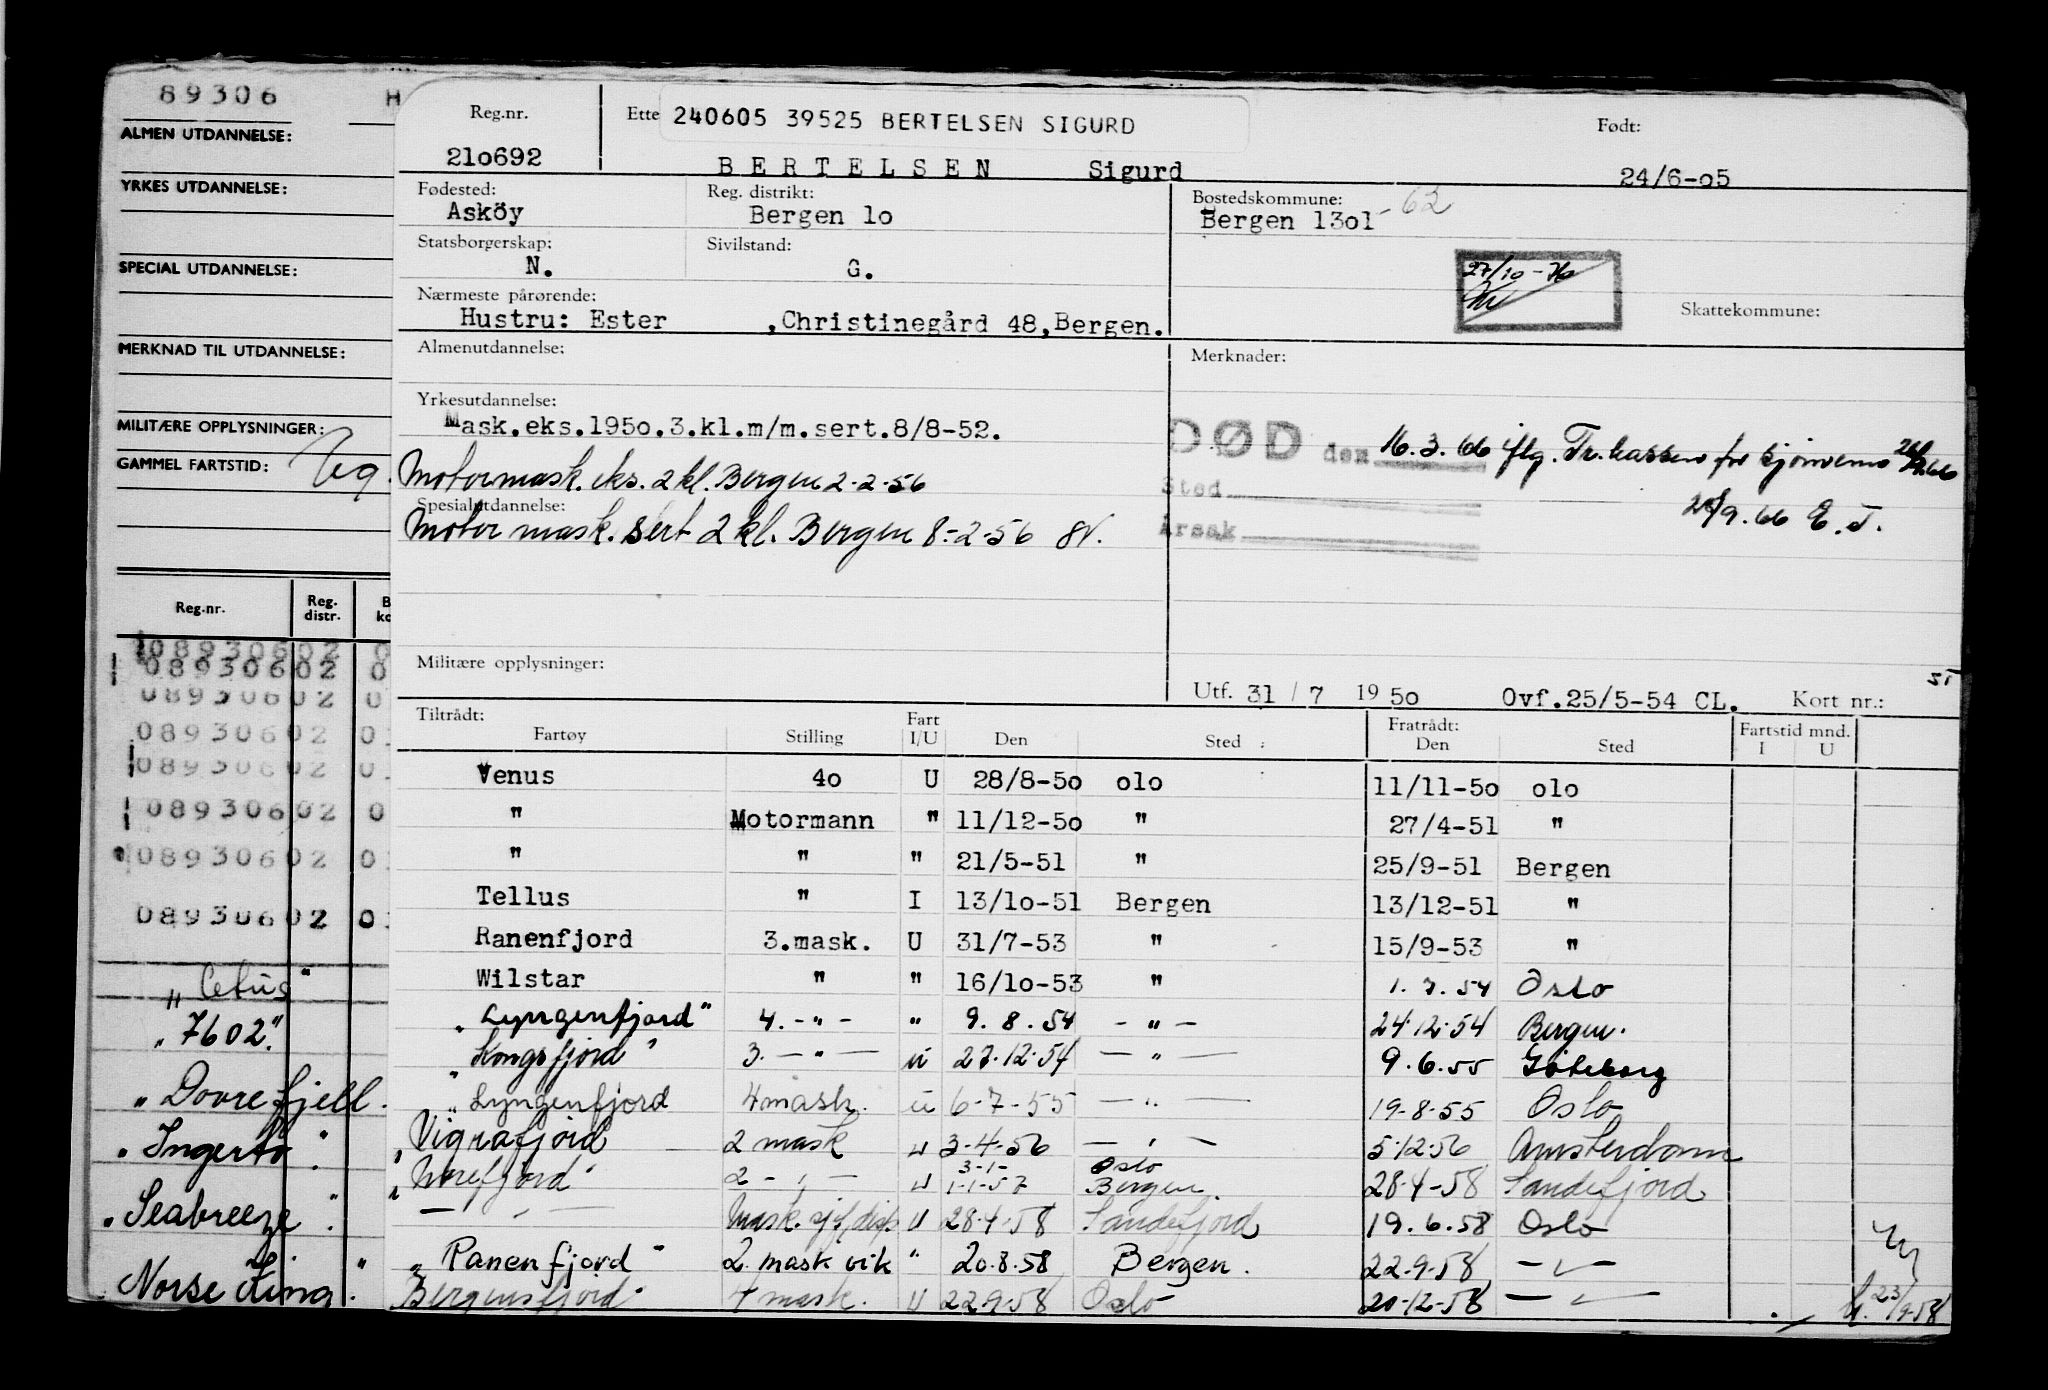 89306
ALMEN UTDANNELSE:
YRKES UTDANNELSE:
SPECIAL UTDANNELSE:
MERKNAD TIL UTDANNELSE:
MILITÆRE OPPLYSNINGER:
GAMMEL FARTSTID:
Reg.nr. Reg. distr.
08930602 0
08930602 0
08930602 0
08930602 0
08930602 0
08930602 0
08930602 0
08930602 0
"Cetus"
"7602"
"Dovrefjell.
"Ingerto"
"Seabreeze"
Norse King"
Reg.nr. Ette 240605 39525 BERTELSEN SIGURD Født:
21o692 BERTELSEN Sigurd 24/6-o5
Fødested: Reg. distrikt: Bostedskommune:
Asköy Bergen 1o Bergen 13o1 -62
Statsborgerskap: Sivilstand:
N. G. 27/10-
Nærmeste pårørende: Skattekommune:
Hustru: Ester ,Christinegård 48,Bergen.
Almenutdannelse: Merknader:
Yrkesutdannelse:
Mask.eks.195o.3.kl.m/m.sert.8/8-52.
DØD den 16.3.66 iflg. Tr.kassen for sjömenn
Motormask. eks. 2 kl. Bergen 2-2-56
Sted
Spesialutdannelse: 20/9.66 E.J.
Motor mask. sert 2 kl. Bergen 8-2-56
Årsak
Militære opplysninger:
Utf. 31/7 1950 Ovf.25/5-54 CL. Kort nr.:
Tiltrådt: Fratrådt: Fartstid mnd.
Fartøy Stilling Fart I/U Den Sted Den Sted I U
Venus 4o U 28/8-5o o1o 11/11-5o o1o
" Motormann " 11/12-5o " 27/4-51 "
" " " 21/5-51 " 25/9-51 Bergen
Tellus " I 13/1o-51 Bergen 13/12-51 "
Ranenfjord 3.mask. U 31/7-53 " 15/9-53 "
Wilstar " " 16/1o-53 " 1.7.54 Oslo
"Lyngenfjord" 4.-"- " 9.8.54 -"- 24.12.54 Bergen.
"Kongsfjord" 3.-"- u 27.12.54 -"- 9.6.55 Göteborg
"Lyngenfjord 4 mask. u 6-7-55 -"- 19-8-55 Oslo
"Vigrafjord 2 mask u 3-4-56 -"- 5-12-56 Amsterdam
3-1- Oslo
"Norefjord" 2 -"- u 1-1-57 Bergen. 28-4-58 Sandefjord
-"- Mask. u 28-4-58 Sandefjord 19.6.58 Oslo
"Ranenfjord" 2 mask vik " 20.8.58 Bergen. 22-9-58 -"-
Bergensfjord" 4 mask. U 22-9-58 Oslo 20-12-58 -"- 23/9-58